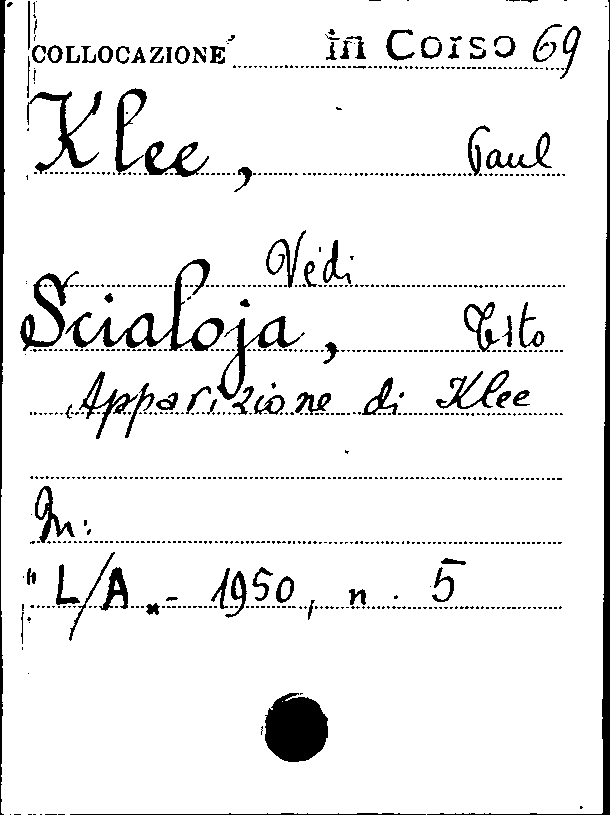 COLLOCAZIONE in Corso 69
Klee, Paul
Vedi
Scialoja, Tito
Apparizione di Klee
In:
"L/A" - 1950, n. 5